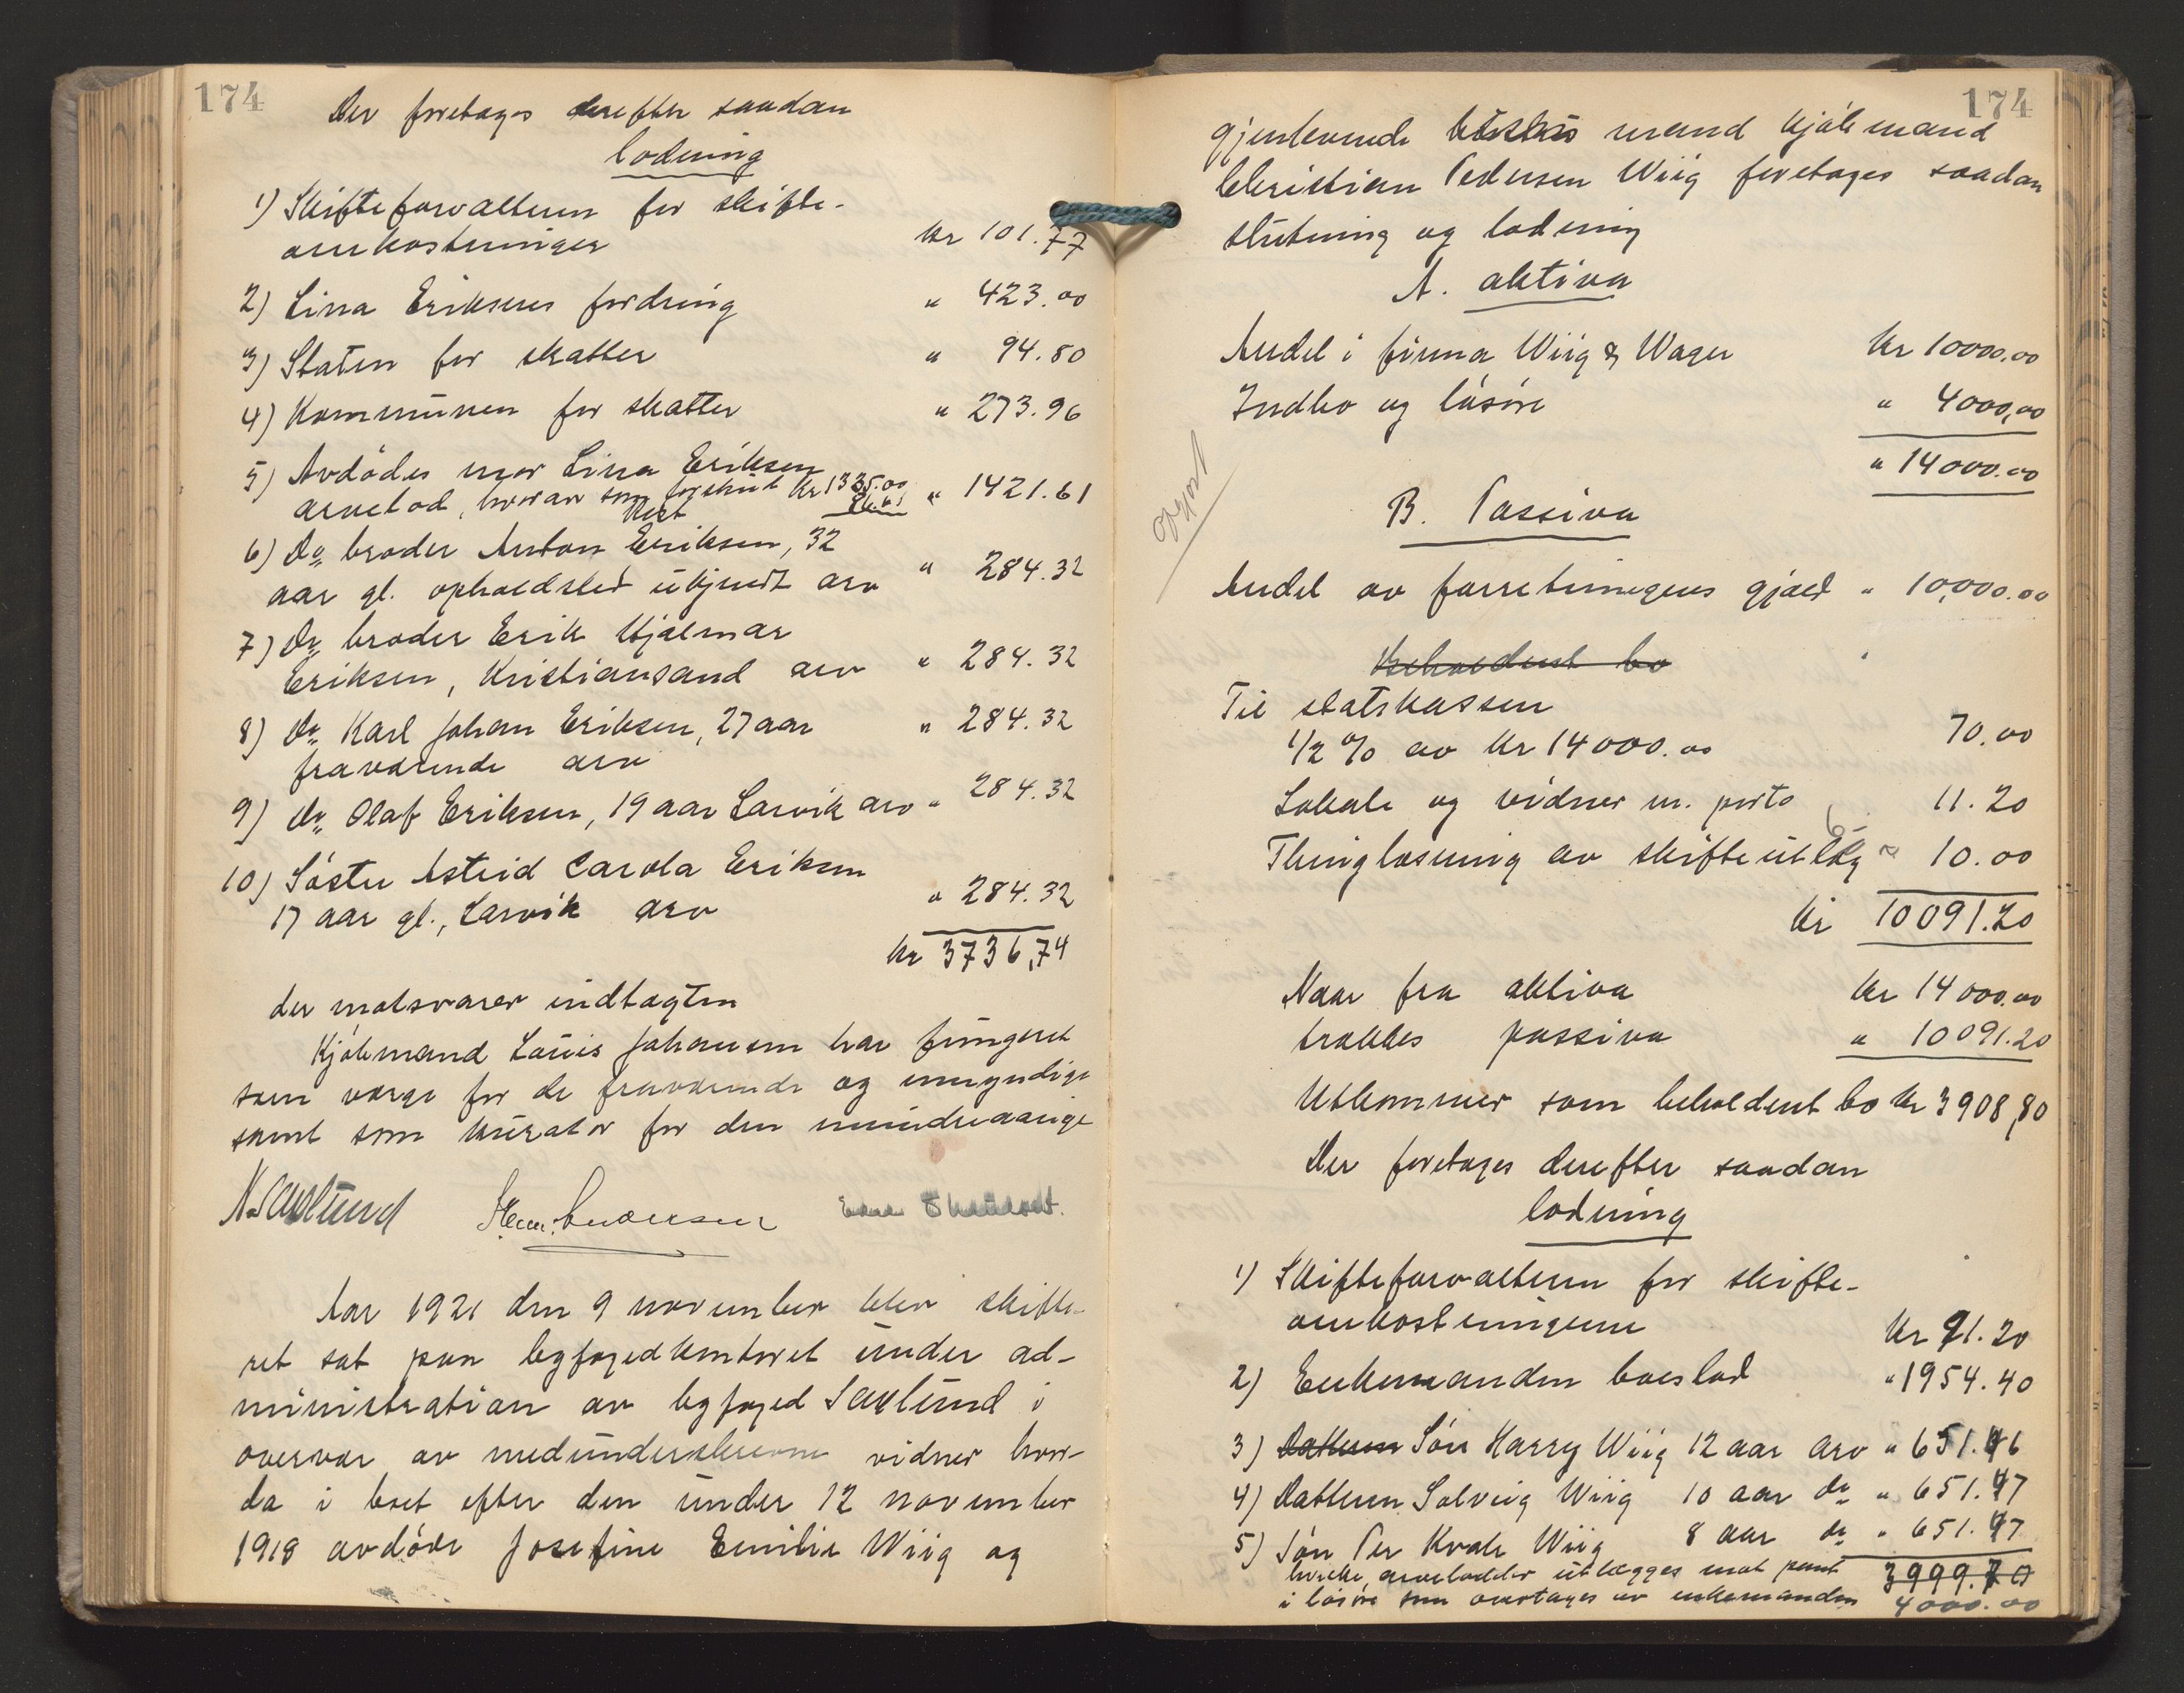 174
Der foretages derefter saadan
lodning
1) Skifteforvalteren for skifte-
omkostninger kr 101.77
2) Lina Eriksens fordring " 423.00
3) Staten for skatter " 94.80
4) Kommunen for skatter " 273.96
5) Avdødes mor Lina Eriksen
arvelod, hvorav som forskud kr 1335.00 " 1421.61
Rest 86.61
6) do broder Anton Eriksen, 32
aar gl. opholdsted ukjendt arv " 284.32
7) do broder Erik Hjalmar
Eriksen, Kristiansand arv " 284.32
8) do Karl Johan Eriksen, 27 aar " 284.32
fraværende arv
9) do Olaf Eriksen, 19 aar Larvik arv " 284.32
10) Søster Astrid Carola Eriksen
17 aar gl., Larvik arv " 284.32
kr 3736,74
der motsvarer indtægten
Kjøbmand Louis Johansen har fungeret
som værge for de fraværende og umyndige
samt som kurator for den mindreaarige
Aar 1921 den 9 november blev skifte-
ret sat paa byfogedkontoret under ad-
ministration av byfoged Saxlund i
overvær av medunderskrevne vidner hvor-
da i boet efter den under 12 november
1918 avdøde Josefine Emilie Wiig og
174
gjenlevende mand kjøbmand
Christian Pedersen Wiig foretages saadan
slutning og lodning
A. aktiva
Andel i firma Wiig & Wager kr 10000.00
Indbo og løsøre " 4000,00
" 14000.00
B. Passiva
Gjort
Andel av forretningens gjæld " 10,000.00
Beholdent bo
Til statskassen
1/2 % av kr 14000.00 70.00
Lokale og vidner m. porto 11.20
Thinglæsning av skifteutlæg " 10.00
kr 10091.20
Naar fra aktiva kr 14000.00
trækkes passiva " 10091.20
Utkommer som beholdent bo kr 3908,80
Der foretages derefter saadan
lodning
1) Skifteforvalteren for skifte-
omkostningerne kr 91.20
2) Enkemanden boeslod " 1954.40
3) Datteren Søn Harry Wiig 12 aar arv " 651.46
4) Datteren Solveig Wiig 10 aar do " 651.47
5) Søn Per Kvale Wiig 8 aar do " 651.47
hvilke arvelodder utlægges mot pant 3999.70
i løsøre som overtages av enkemanden 4000.00